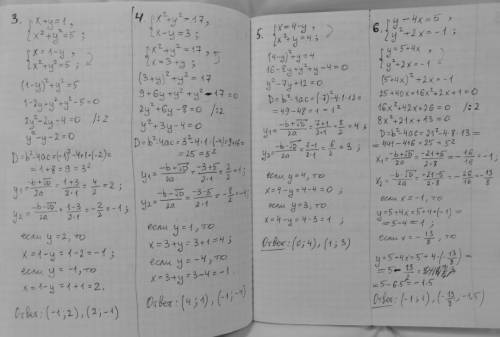 3. {x+y=1,
x²+y²=5;
{x=1-y,
x²+y²=5;
(1-y)²+y²=5
1-2y+y²+y²-5=0
2y²-2y-4=0 /:2
y²-y-2=0
D=b²-4ac=(-1)²-4·1·(-2)=
=1+8=9=3²
y₁=(-b+√D)/2a=(1+3)/(2·1)=4/2=2;
y₂=(-b-√D)/2a=(1-3)/(2·1)=-2/2=-1;
если y=2, то
x=1-y=1-2=-1;
если y=-1, то
x=1-y=1+1=2.
Ответ: (-1;2), (2;-1)
4. {x²+y²=17,
x-y=3;
{x²+y²=17,
x=3+y;
(3+y)²+y²=17
9+6y+y²+y²-17=0
2y²+6y-8=0 /:2
y²+3y-4=0
D=b²-4ac=3²-4·1·(-4)=9+16=
=25=5²
y₁=(-b+√D)/2a=(-3+5)/(2·1)=2/2=1;
y₂=(-b-√D)/2a=(-3-5)/(2·1)=-8/2=-4;
если y=1, то
x=3+y=3+1=4;
если y=-4, то
x=3+y=3-4=-1.
Ответ: (4;1), (-1;-4)
5. {x=4-y,
x²+y=4;
(4-y)²+y=4
16-8y+y²+y-4=0
y²-7y+12=0
D=b²-4ac=(-7)²-4·1·12=
=49-48=1=1²
y₁=(-b+√D)/2a=(7+1)/(2·1)=8/2=4;
y₂=(-b-√D)/2a=(7-1)/(2·1)=6/2=3;
если y=4, то
x=4-y=4-4=0;
если y=3, то
x=4-y=4-3=1;
Ответ: (0;4), (1;3)
6. {y-4x=5,
y²+2x=-1;
{y=5+4x,
y²+2x=-1;
(5+4x)²+2x=-1
25+40x+16x²+2x+1=0
16x²+42x+26=0 /:2
8x²+21x+13=0
D=b²-4ac=21²-4·8·13=
=441-416=25=5²
x₁=(-b+√D)/2a=(-21+5)/(2·8)=-16/16=-1;
x₂=(-b-√D)/2a=(-21-5)/(2·8)=-26/16=-13/8
если x=-1, то
y=5+4x=5+4·(-1)=
=5-4=1;
если x=-13/8, то
y=5+4x=5+4·(-13/8)=
=5-13/2=
=5-6.5=-1.5
Ответ: (-1;1), (-13/8;-1,5)